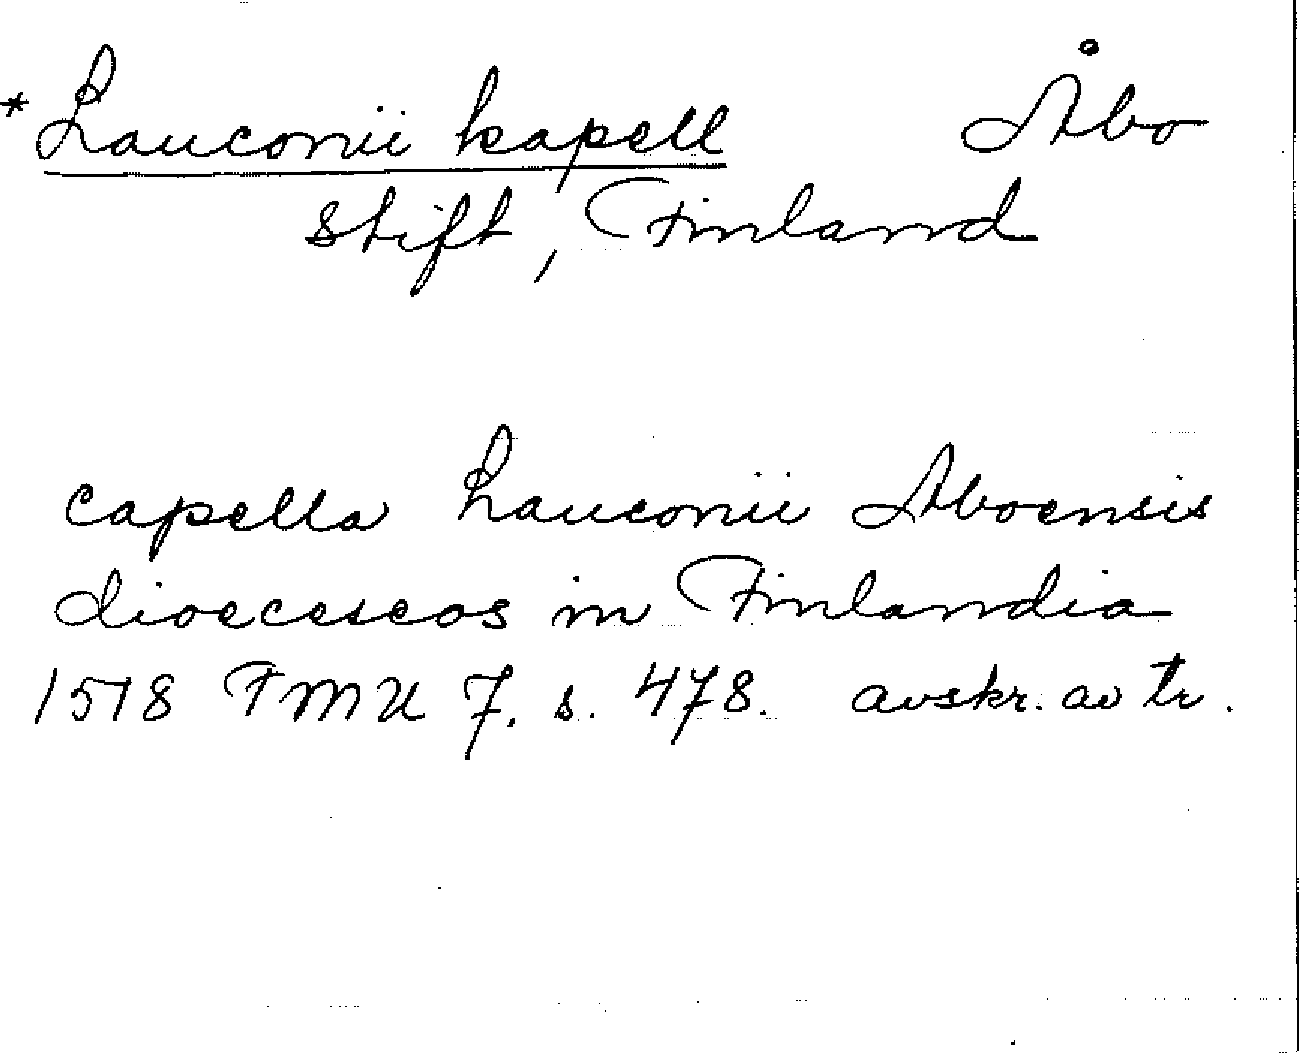 * Lauconii kapell Åbo
stift, Finland
capella Lauconii Aboensis
dioeceseos in Finlandia
1518 FMU 7. s. 478. avskr. av tr.